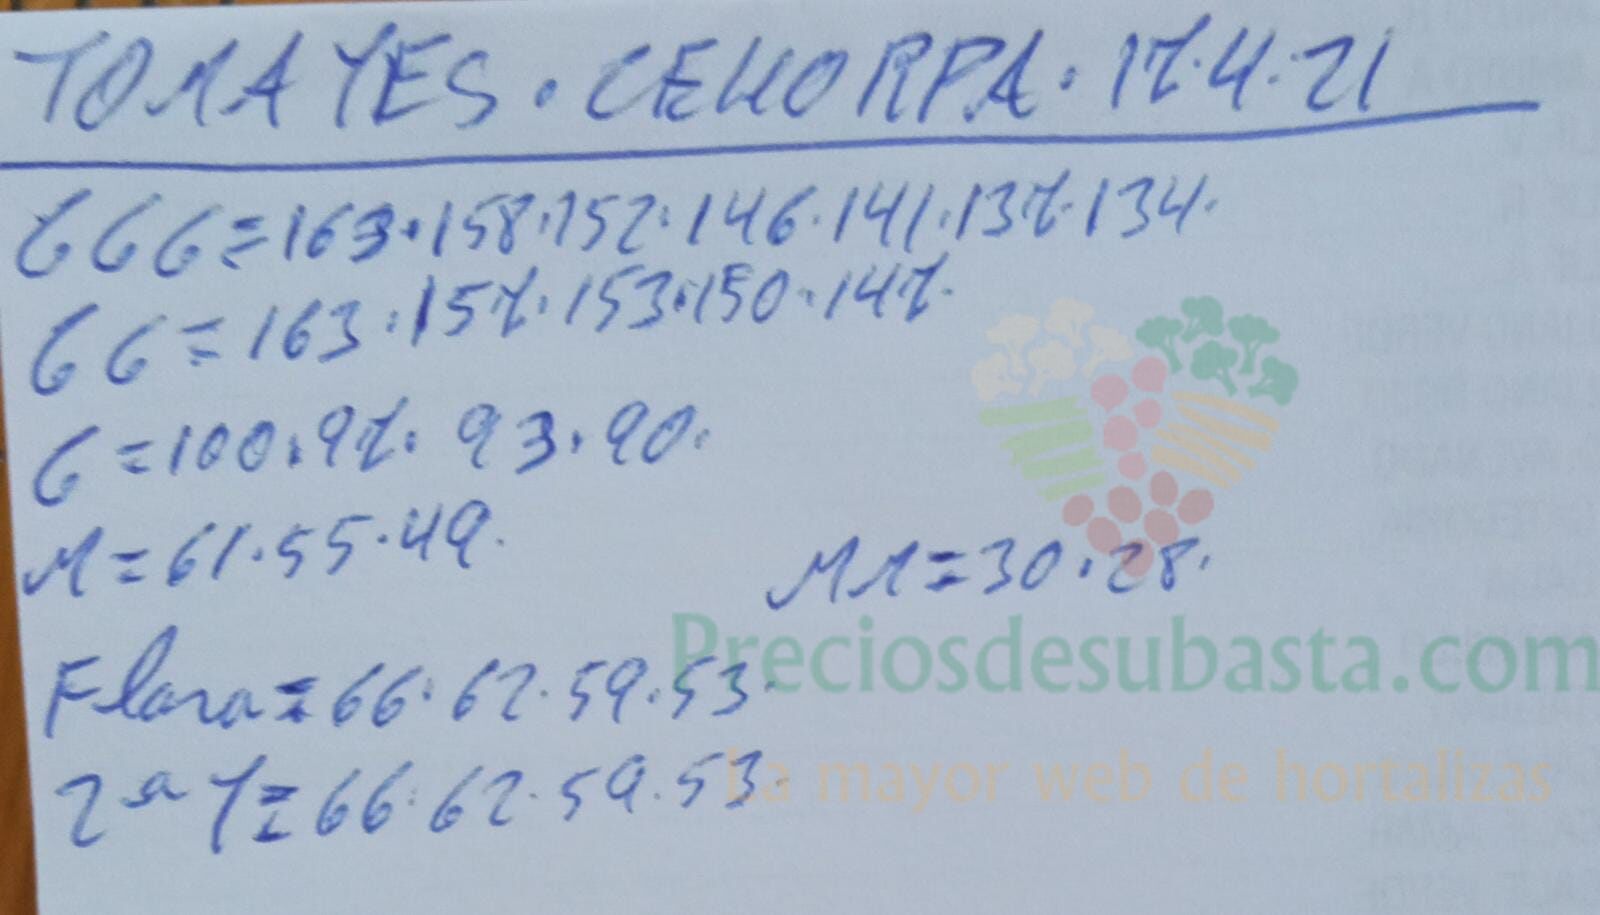 TOMATES · CEHORPA · 17·4·21
GGG = 163 · 158 · 152 · 146 · 141 · 137 · 134 ·
GG = 163 · 157 · 153 · 150 · 147 ·
G = 100 · 97 · 93 · 90 ·
M = 61 · 55 · 49 ·
MM = 30 · 28 ·
Preciosdesubasta.com
Flora = 66 · 62 · 59 · 53 ·
La mayor web de hortalizas
2ª T = 66 · 62 · 59 · 53 ·